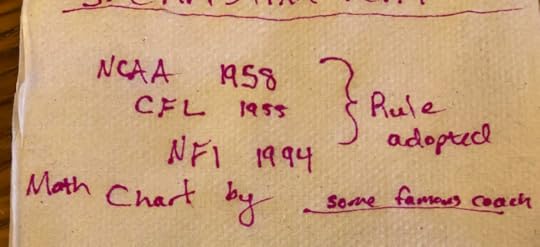 NCAA 1958
CFL 1955
Rule
adopted
NFl 1994
Math Chart by some famous coach